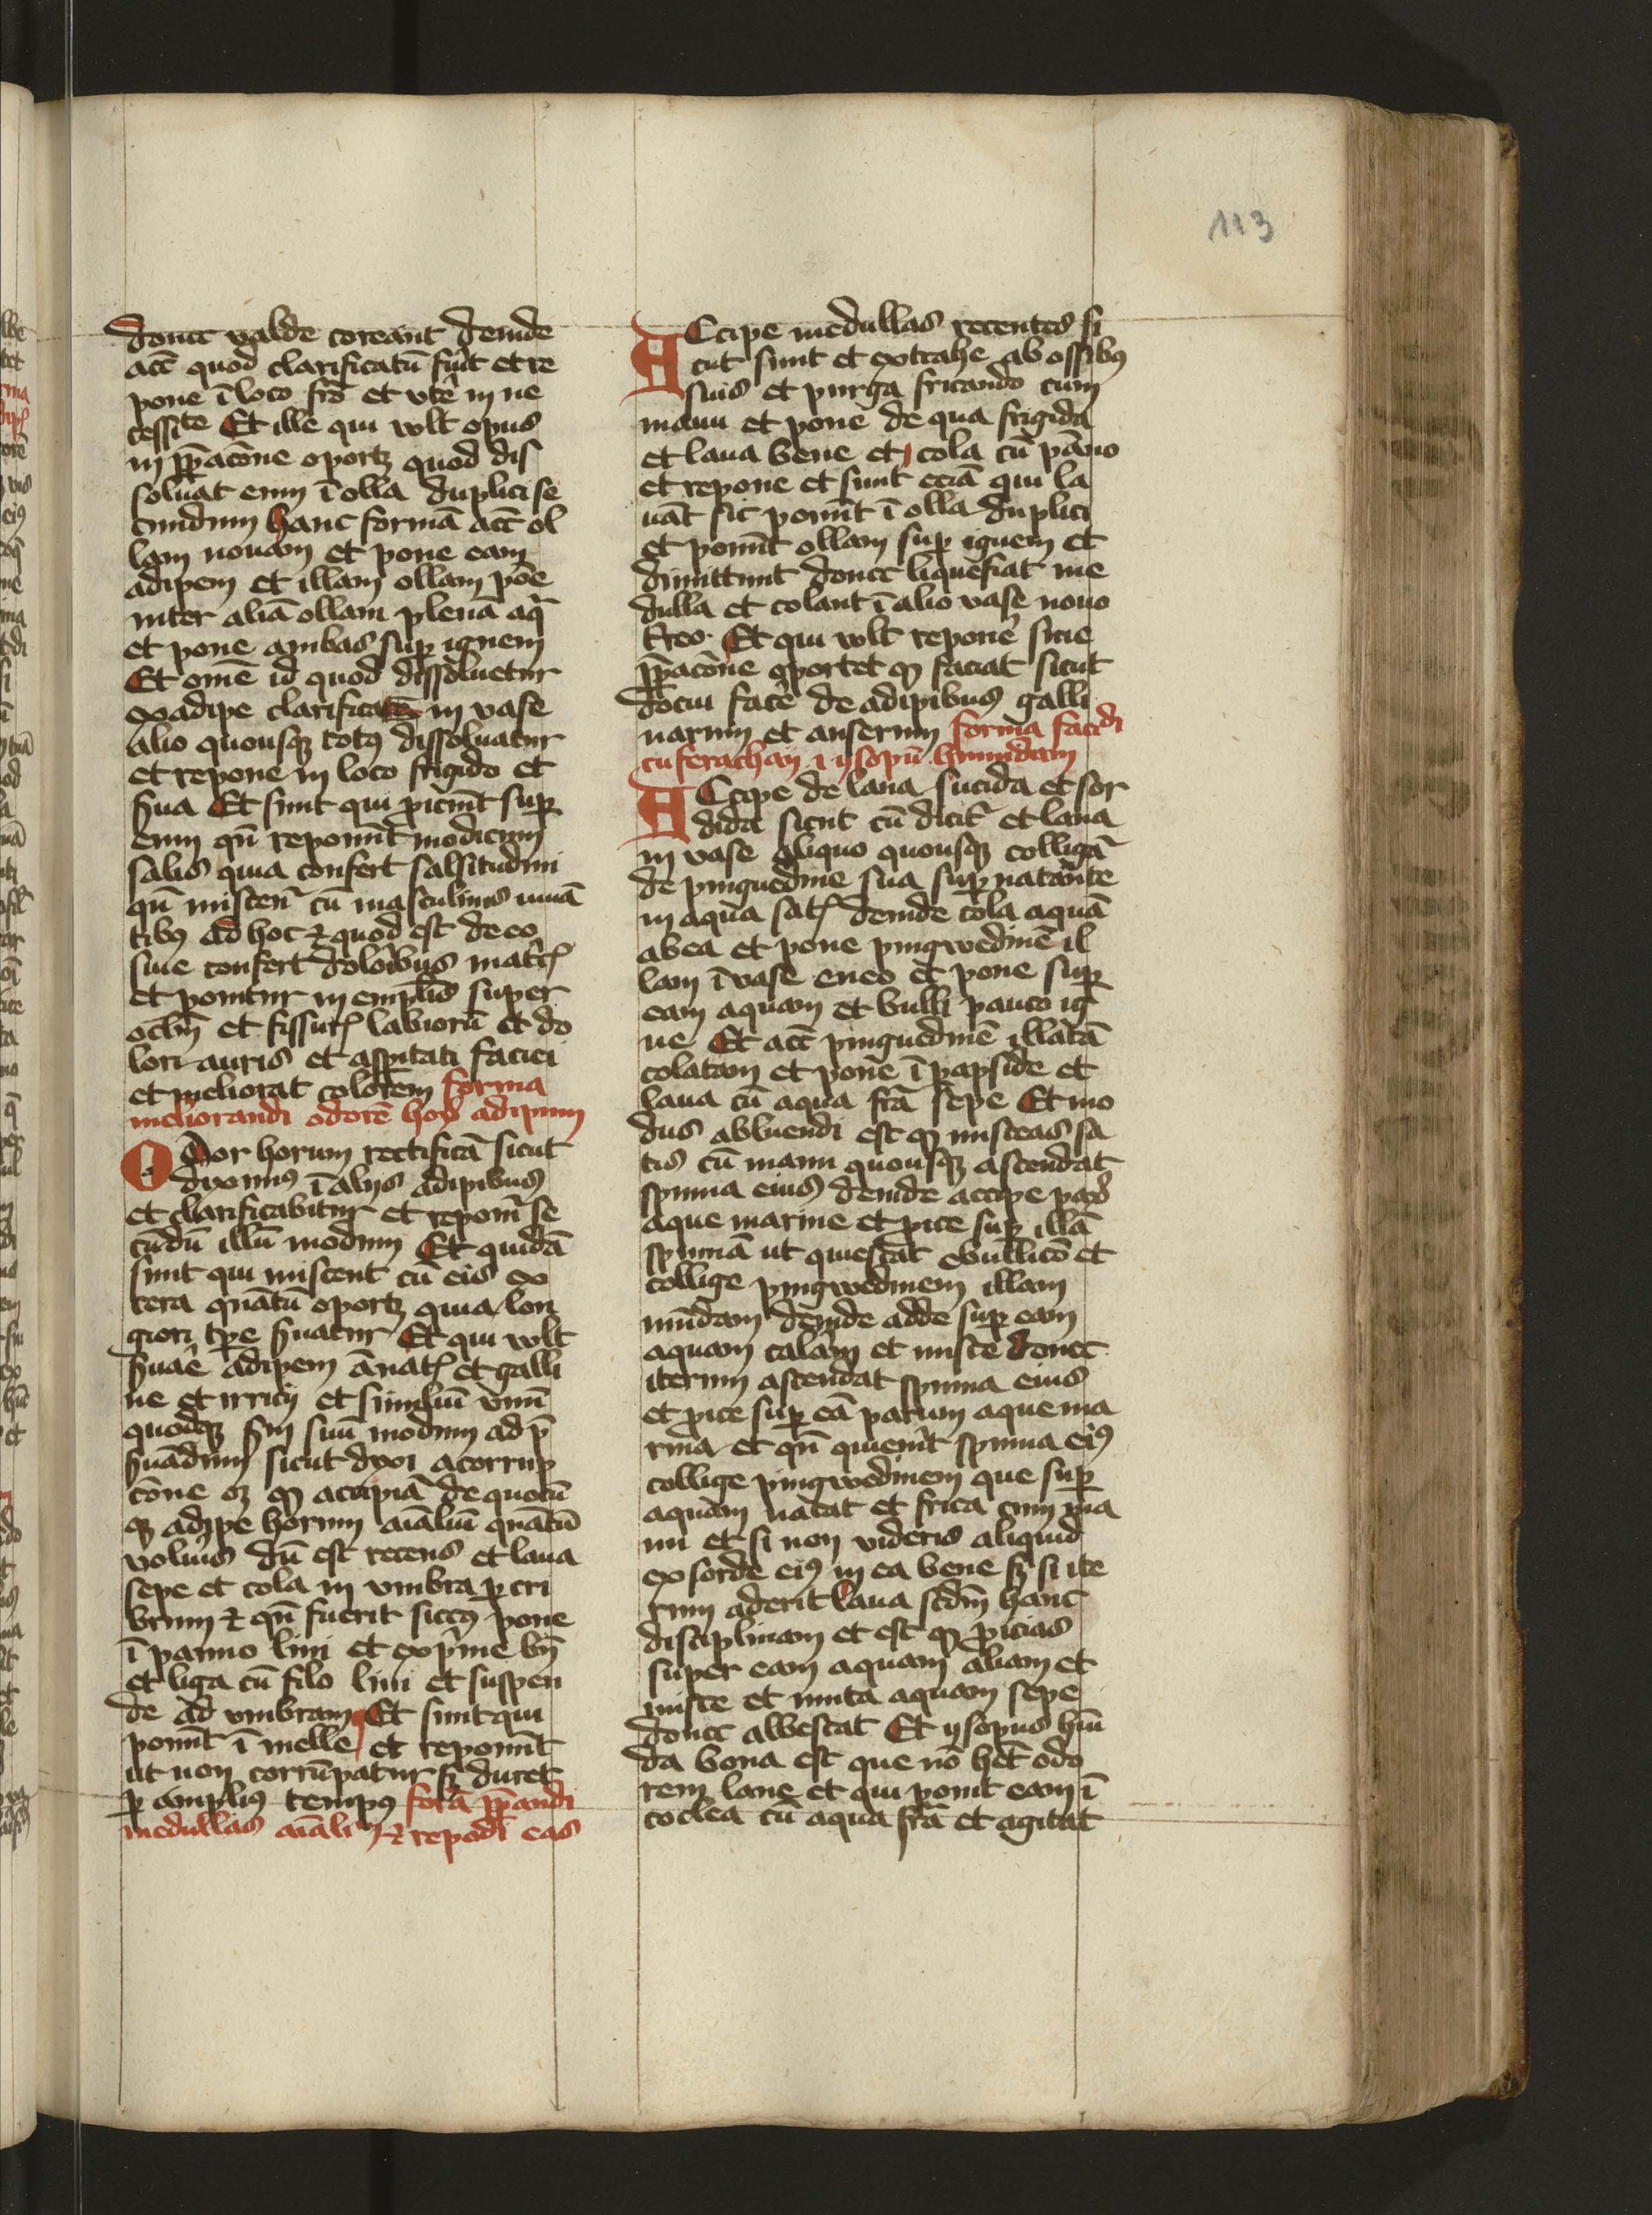 113
donec valde coreant deinde
acc quod clarificatū fuīt et re
pone ī loco frō et vtē in ne
cessite Et ille qui vult opus
in pp̄acōne oportꝫ quod dis
soluat eum ī olla duplici se
cundum hanc formā acc ol
lam nouam et pone eam
adipem et illam ollam pōe
inter aliā ollam plenā aq̄
et pone ambas suꝑ ignem
Et omē id quod dissoluetur
ex adipe clarificatē in vase
alio quousqꝫ totꝰ dissoluatur
et repone in loco frigido et
ſ̄ua Et sunt qui ꝓiciūt suꝑ
eum qn̄ reponūt modicum
salis quia confert salsitudini
qn̄ miscen̄t cū masculinis iuuā
tibꝰ ad hoc ⁊ quod est de eo
sine confert dolōibus matc̄ꝭ
et ponitur in emplīs super
oclm̄ et fissurꝭ labiorū et do
lori auris et aspitati faciei
et meliorat colorem forma
meliorandi odorē hoꝝ adipum
Odor horum rectificā sicut
diximꝰ ī alijs adipibus
et clarificabitur et reponīt se
cūdū illū modum Et quidā
sunt qui miscent cū eis ex
cera quātū oportꝫ quia lon
giori tꝑe ſ̄uatur Et qui vult
ſ̄uaē adipem ānatꝭ et galli
ne et irricij et similiū vnū
quodqꝫ ſm̄ suū modum ad p̄
ſ̄uādum sicut dixi a corrup
cōne oꝫ ꝙ accipiā de quocū
qꝫ adipe horum aīaliū quātū
volūis dū est recens et laua
sepe et cola in vmbra ꝑ cri
brum ⁊ qn̄ fuerit siccꝰ pone
ī panno lini et expͥme bn̄
et liga cū filo lini et suspen
de ad vmbram Et sunt qui
ponūt ī melle et reponūt
ut non corrūpatur sꝫ duret
ꝑ ampliꝰ tempꝰ forā pp̄andi
medullas aīaliꝭ ⁊ repōdī eas
Accipe medullas recentes si
cut sunt et extrahe ab ossibꝰ
suis et purga fricando cum
manu et pone de qua frigida
et laua bene et cola cū pāno
et repone et sunt eciā qui la
uāt sic ponūt ī olla duplici
et ponūt ollam suꝑ ignem et
dimittunt donec liquefiat me
dulla et colant ī alio vase nouo
frēo Et qui vult reponē sine
pp̄acōne oportet ꝙ faciat sicut
docui facē de adipibus galli
narum et anserum forma faccdi
cuferachan i ysopū humidam
Accipe de lana sucida et sor
dida sicut cū dicit᷑ et laua
in vase aliquo quousqꝫ colligā
de pinguedine sua suꝑnatante
in aqua satꝭ deinde cola aquā
ab ea et pone pingwedinē il
lam ī vase eneo et pone suꝑ
eam aquam et bulli pauco ig
ne Et acc pinguedinē illātā
colatam et pone ī papside et
laua cū aqua frā sepe Et mo
dus abluendi est ꝙ misceas sa
tis cū manu quousqꝫ ascendat
spuma eius deinde accipe paꝝ
aque marine et ꝓice suꝑ illā
spumā ut quiescat ebullicō et
collige pingwedinem illam
mūdam deinde adde suꝑ eam
aquam calām et misce donec
iterum ascendat spuma eius
et ꝓice suꝑ eā parum aque ma
rina et qn̄ quieuīt spuma eiꝰ
collige pingwedinem que suꝑ
aquam natat et frica cum ma
nu et si non videris aliquid
ex sorde eiꝰ in ea bene sꝫ si ite
rum aderit laua scdm̄ hanc
disciplinam et est ꝙ ꝓicias
super eam aquam aliam et
misce et muta aquam sepe
donec albescat Et ysopus hūi
da bona est que nō het odo
rem lane et qui ponit eam ī
coclea cū aqua frā et agitat